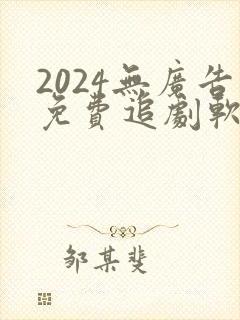 2024無廣告
免費追劇軟
邹某斐